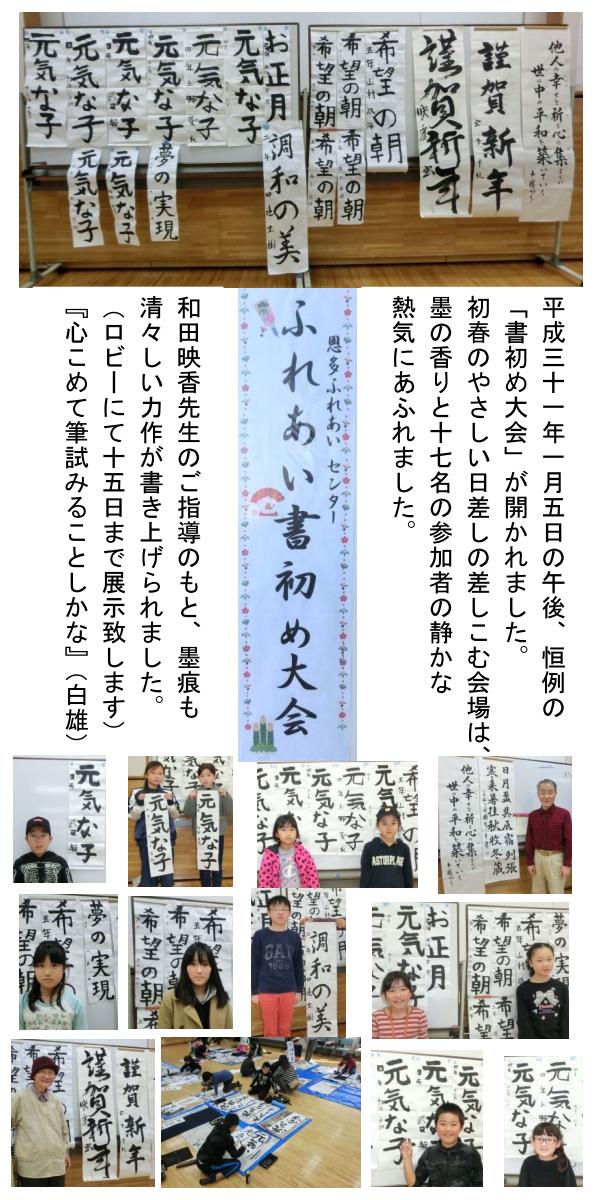 他人の幸せを祈る心の集
世の中の平和を築いていく
謹賀新年
謹賀新年
希望の朝
希望の朝
希望の朝
お正月
元気な子
元気な子
元気な子
元気な子
元気な子
元気な子
希望の朝
希望の朝
調和の美
夢の実現
元気な子
元気な子
平成三十一年一月五日の午後、恒例の
「書初め大会」が開かれました。
初春のやさしい日差しの差しこむ会場は、
墨の香りと十七名の参加者の静かな
熱気にあふれました。
恩多ふれあい センター
ふれあい書初め大会
和田映香先生のご指導のもと、墨痕も
清々しい力作が書き上げられました。
（ロビーにて十五日まで展示致します）
『心こめて筆試みることしかな』（白雄）
元気な子
元気な子
元気な子
元気な子
元気な
ASTORPLACE
日月盈昃辰宿列張
寒来暑往秋収冬蔵
他人の幸せを祈る心の集
世の中の平和を築
夢の実現
希望の
希望の朝
希望の朝
GAP
1969
調和の美
お正月
元気な子
夢の実現
希望の朝
希望の朝
謹賀新年
謹賀新年
元気な子
元気な子
元気な子
元気な子